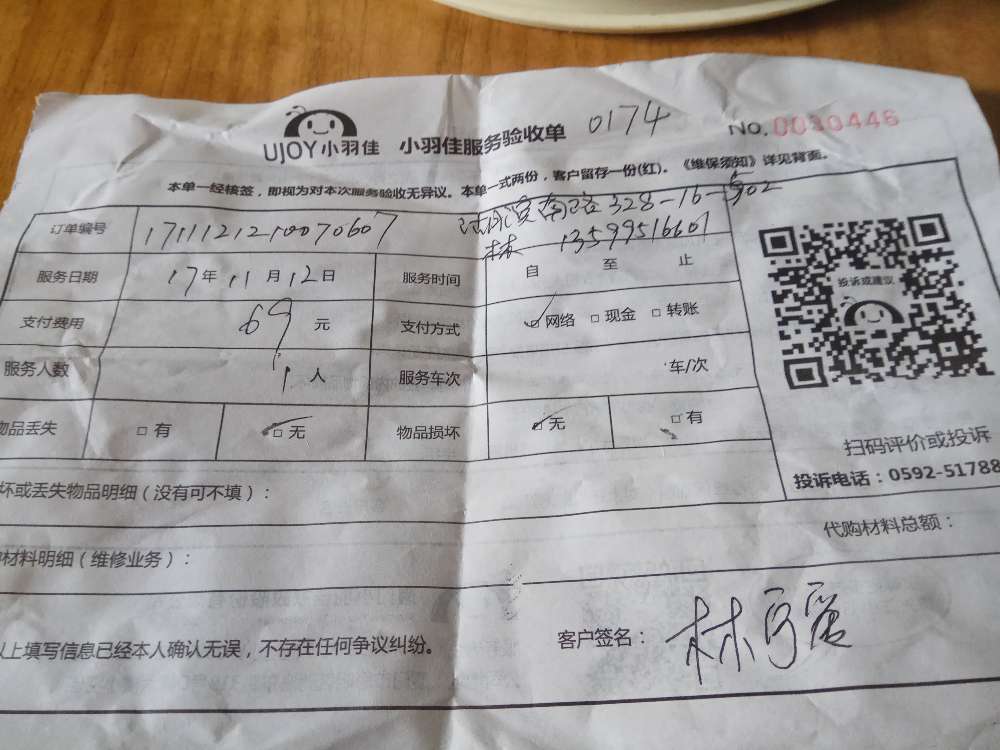 UJOY小羽佳 小羽佳服务验收单 0174 NO.0030446
本单一经核签，即视为对本次服务验收无异议。本单一式两份，客户留存一份(红)。《维保须知》详见背面。
南路 328-16-502
订单编号 1711121210070607 林 13599516601
服务日期 17年11月12日 服务时间 自 至 止
支付费用 69元 支付方式 □网络 □现金 □转账
服务人数 1人 服务车次 车/次
物品丢失 □有 □无 物品损坏 □无 □有
投诉或建议
扫码评价或投诉
投诉电话：0592-51788
坏或丢失物品明细（没有可不填）：
代购材料总额：
材料明细（维修业务）：
以上填写信息已经本人确认无误，不存在任何争议纠纷。
客户签名： 林